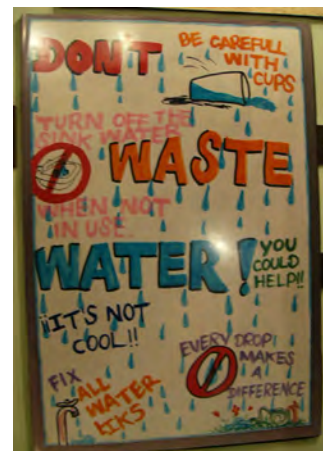 DON'T
BE CAREFULL
WITH
CUPS
TURN OFF THE
SINK WATER
WASTE
WHEN NOT
IN USE.
WATER!
YOU
COULD
HELP!!
¡¡IT'S NOT
COOL!!
EVERY DROP
MAKES
A
DIFFERENCE
FIX
ALL
WATER
LIKS